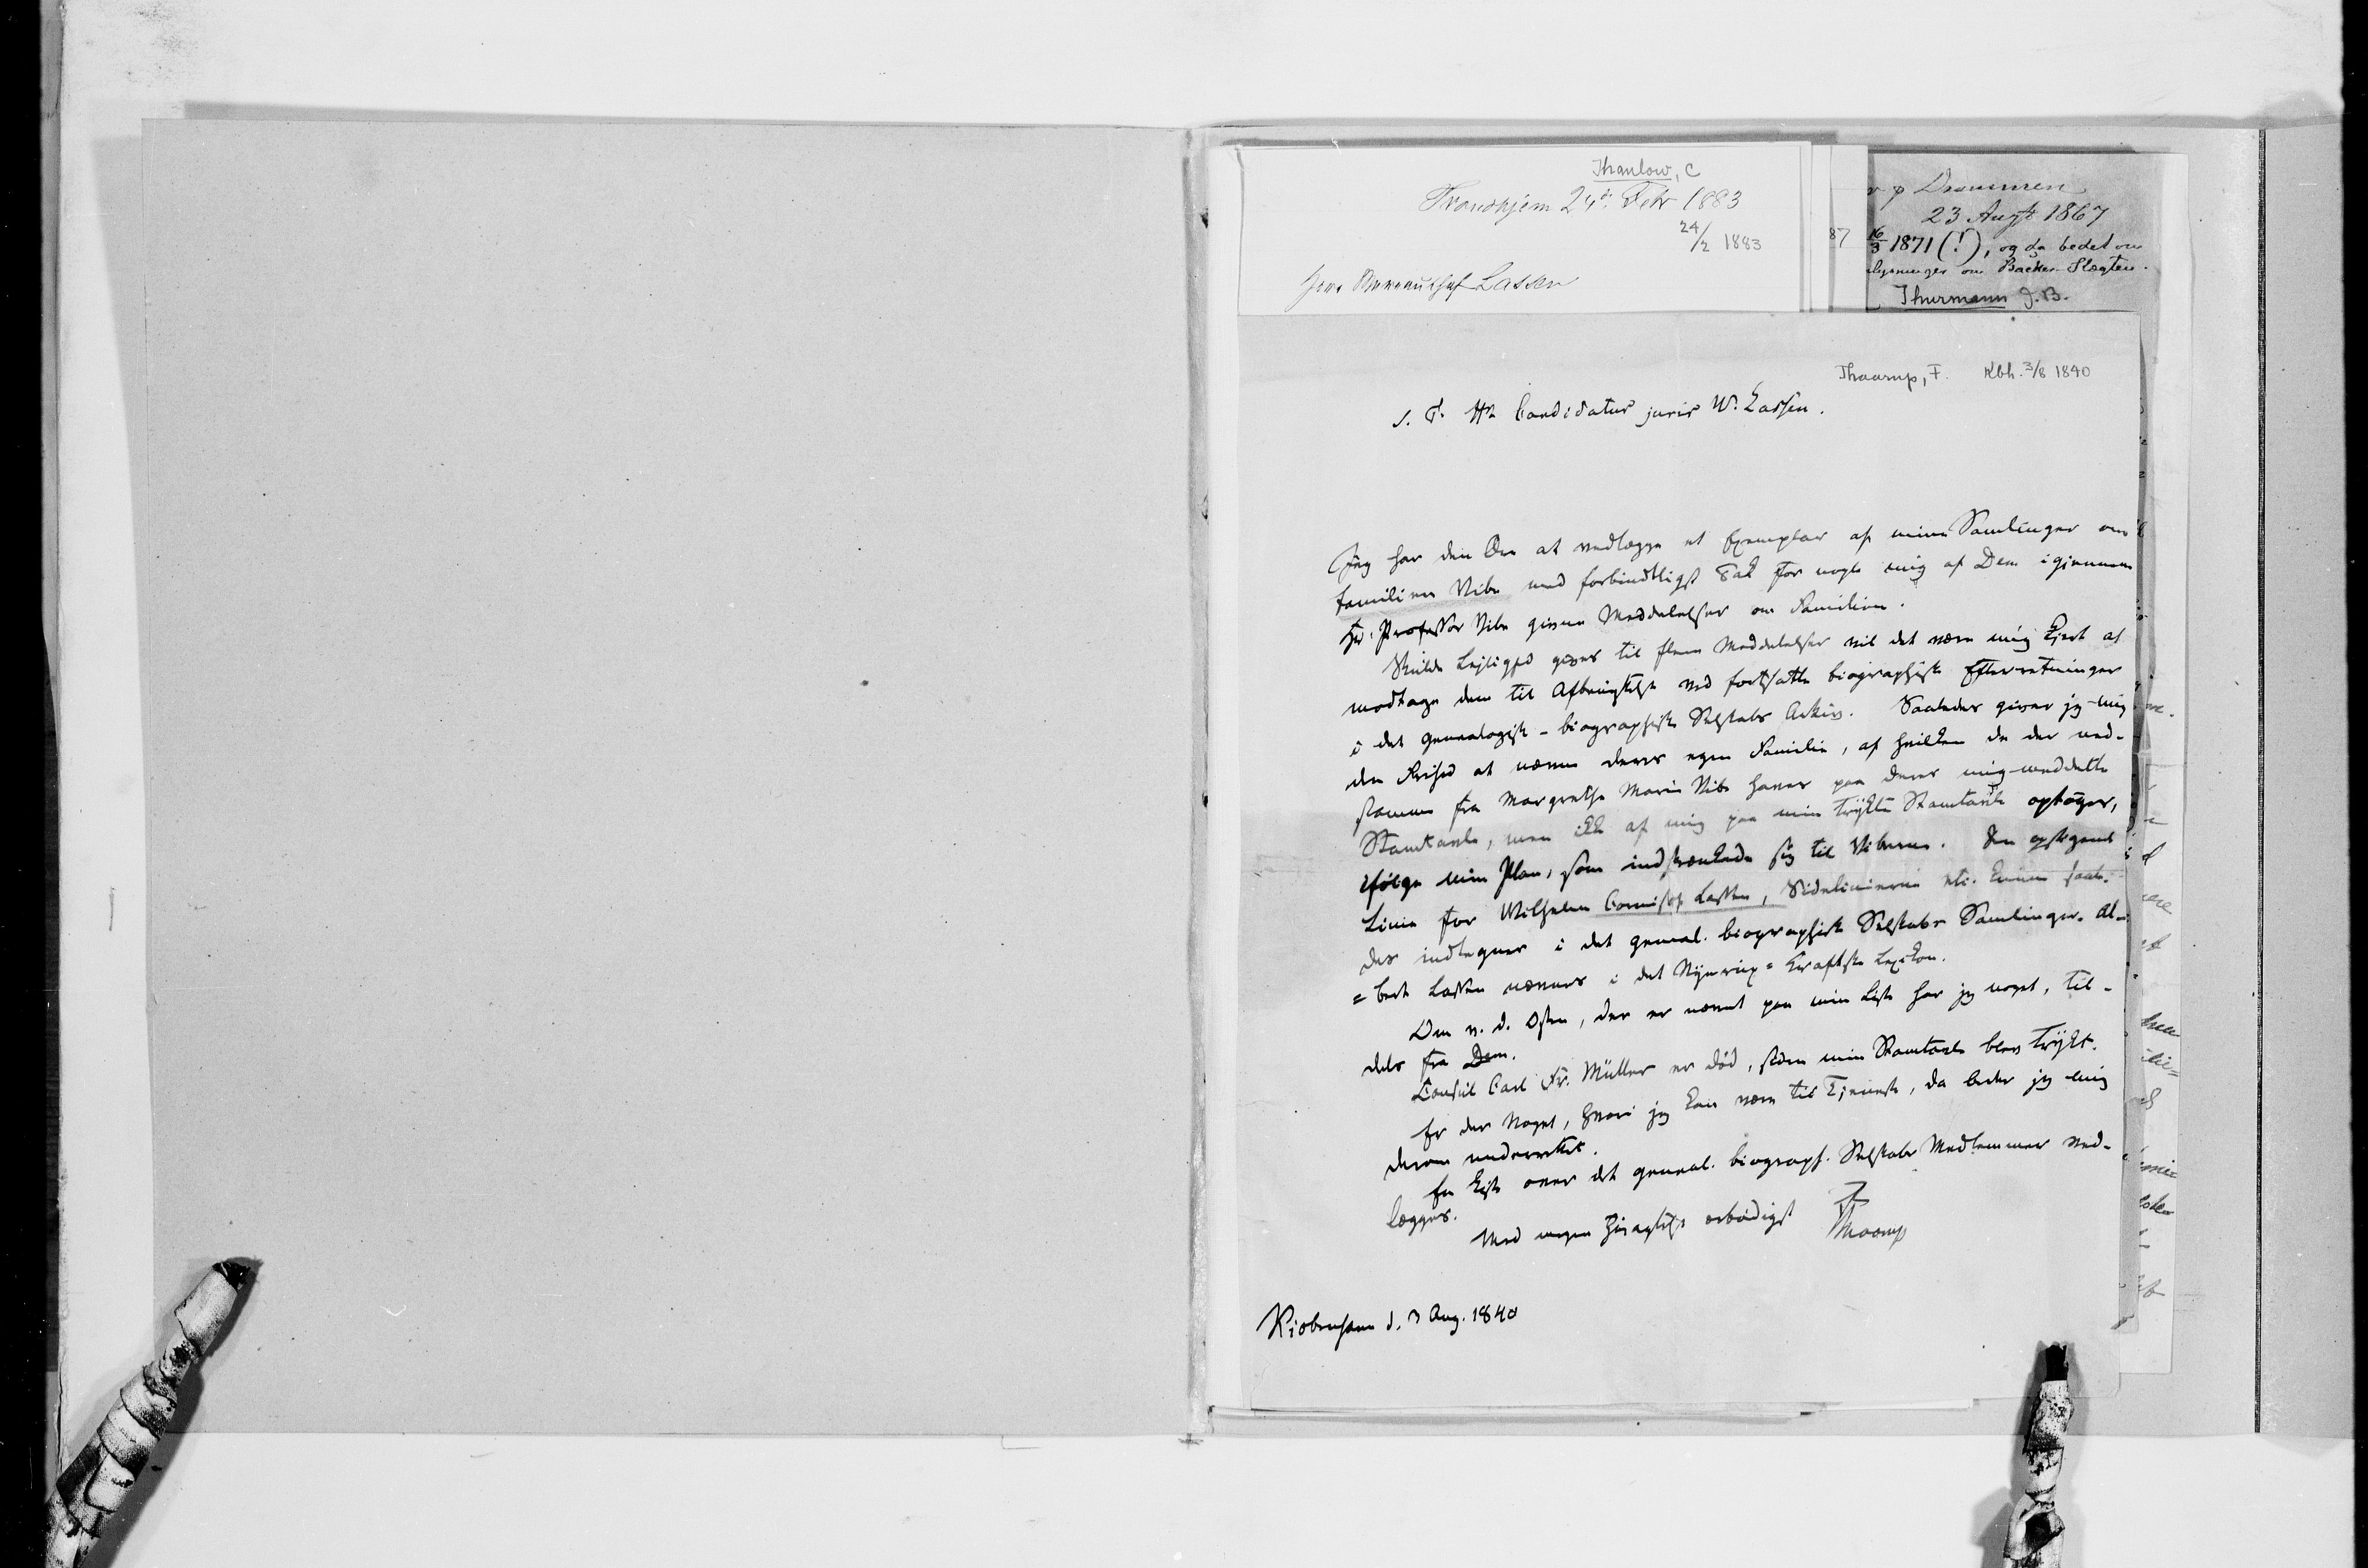 Thaulow, C
Trondhjem 24de Febr 1883
24/2 1883
Herr Lassen
87
Drammen
23 Augt 1867
16/3 1871 (!), og da bedet om
lysninger om Backer-Slægten.
Thurmann J. B.
Thaarup, F. Kbh. 3/8 1840
S. T. Hr. Candidatus juris W. Lassen.
Jeg har den Ære at vedlægge et Exemplar af mine Samlinger om
familien Vibe med forbindtligst Tak for nogle mig af Dem igiennem
Hr. Professor Vibe givne Meddelelser om Familien.
Skulde Leilighed gives til flere Meddelelser vil det være mig kjert at
modtage dem til Afbenyttelse ved fortsatte biographiske Efterretninger
i det genealogisk-biographiske Selskabs Arkiv. Saaledes giver jeg mig
den Frihed at nævne deres egen Familie, af hvilken de der ned-
stamme fra Margrethe Marie Vibe haves paa deres mig meddelte
Stamtavle, men ikke af mig paa min trykte Stamtavle optages,
ifølge min Plan, som indskrænkede sig til Viberne. Den opstigende
Linie for Wilhelm Lassen, Sidelinierne etc. kunne saale-
des indtegnes i det geneal. biographiske Selskabs Samlinger. Al-
=bert Lassen nævnes i det Nyerup=Kraftske Lexikon.
Om v. d. Osten, der er nævnt paa min Liste har jeg noget, til-
dels fra Dem.
Consul Carl Fr. Müller er død, siden min Stamtavle blev trykt.
Er der Noget, hvori jeg kan være til Tjeneste, da beder jeg mig
derom underrettet.
En Liste over det geneal. biograph. Selskabs Medlemmer ved-
lægges.
Med megen Høiagtelse ærbødigst
F Thaarup
Kiøbenhavn d. 3 Aug. 1840